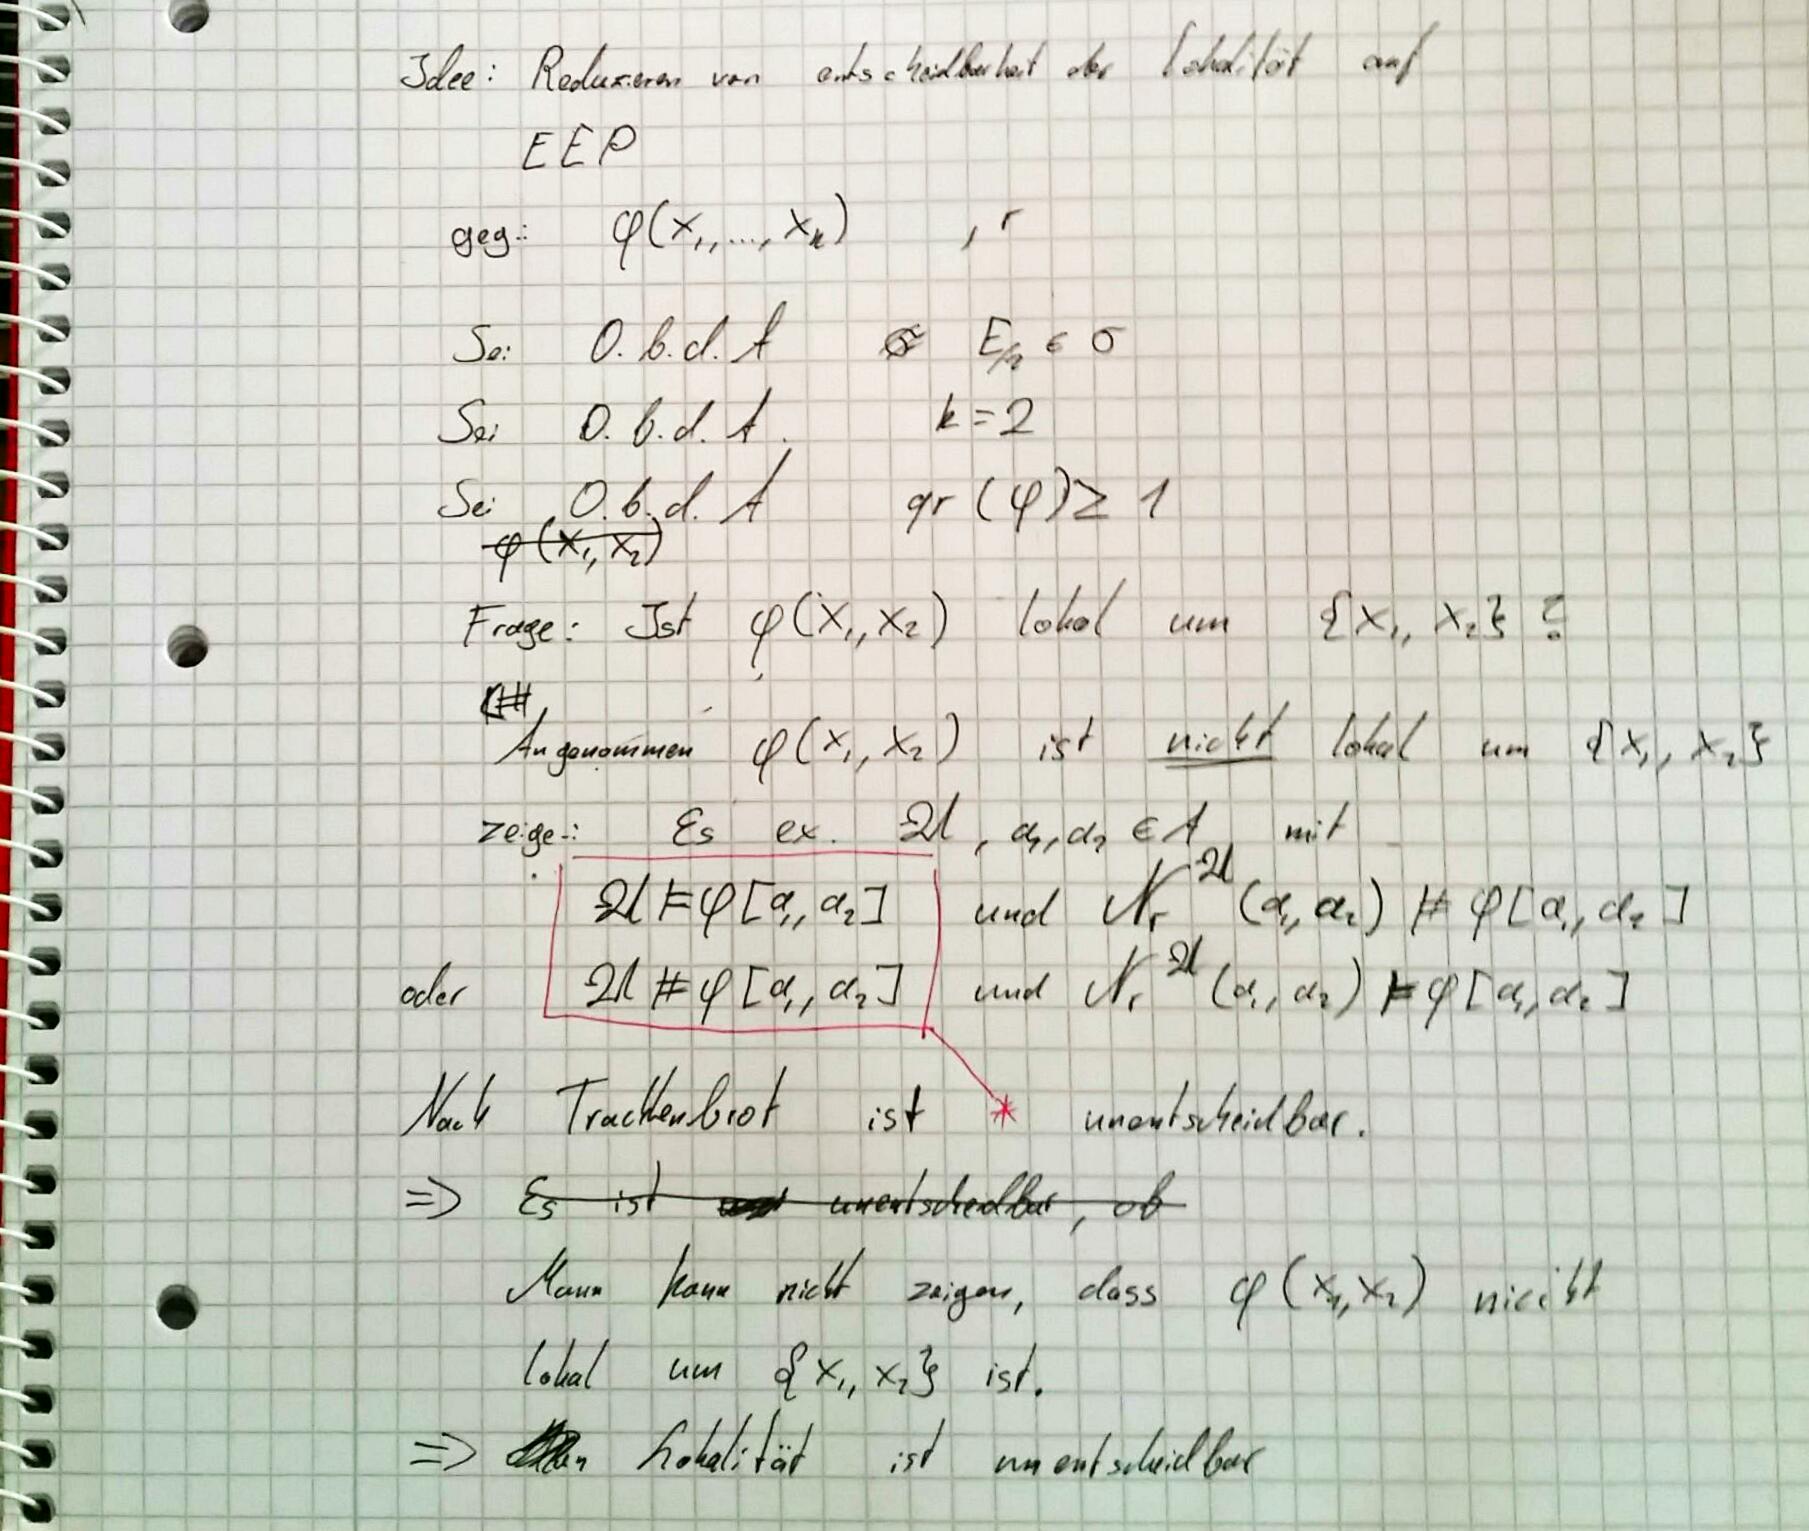 Idee: Reduzieren von entscheidbarheit der Lokalität auf
EEP
geg.: φ(x₁,...,xₖ) , r
Sei O.B.d.A E/₂ ∈ σ
Sei O.B.d.A. k=2
Sei O.B.d.A qr(φ)≥1
φ(x₁,x₂)
Frage: Ist φ(x₁,x₂) lokal um {x₁,x₂}?
Angenommen φ(x₁,x₂) ist nicht lokal um {x₁,x₂}
zeige: Es ex. 𝔄, a₁,a₂ ∈ A mit
𝔄 ⊨ φ[a₁,a₂] und 𝒩ᵣ^𝔄(a₁,a₂) ⊭ φ[a₁,a₂]
oder 𝔄 ⊭ φ[a₁,a₂] und 𝒩ᵣ^𝔄(a₁,a₂) ⊨ φ[a₁,a₂]
Nach Trachtenbrot ist * unentscheidbar.
=> Es ist unentscheidbar, ob
Mann kann nicht zeigen, dass φ(x₁,x₂) nicht
lokal um {x₁,x₂} ist.
=> Lokalität ist unentscheidbar